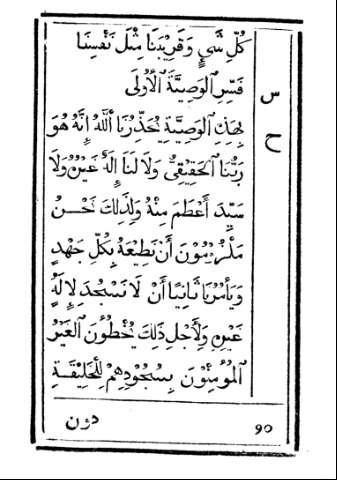 كُلِّ شَيٍ وَقَرِيبَنَا مِثْلَ نَفْسِنَا
س فَسِّرِ الوَصِيَّةَ الْأُولَى
ج بِهٰذِهِ الوَصِيَّةِ يُحَذِّرُنَا ٱللّٰهُ إِنَّهُ هُوَ
رَبُّنَا الحَقِيقِيُّ وَلَا لَنَا إِلَهٌ غَيْرُهُ وَلَا
سَيِّدَ أَعْظَمَ مِنْهُ وَلِذٰلِكَ نَحْنُ
مَلْزُومُونَ أَنْ نُطِيعَهُ بِكُلِّ جَهْدٍ
وَيَأْمُرُنَا ثَانِيًا أَنْ لَا نَسْجُدَ لِإِلٰهٍ
غَيْرِهِ وَلِأَجْلِ ذٰلِكَ يُخْطُؤُنَ الغَيْرُ
المُؤْمِنُونَ بِسُجُودِهِمْ لِلْخَلِيقَةِ
دون
٩٥